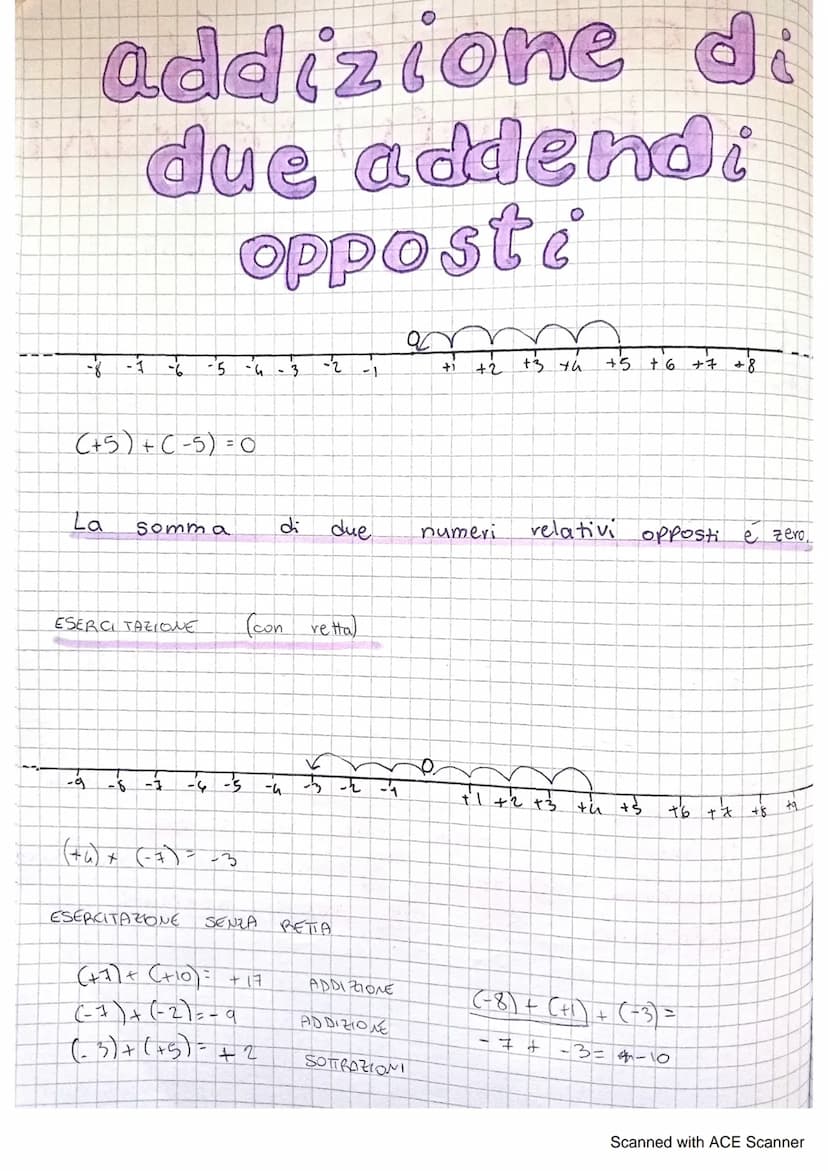 addizione di
due addendi
opposti
-8 -7 -6 -5 -4 -3 -2 -1 0 +1 +2 +3 +4 +5 +6 +7 +8
(+5)+(-5)=0
La somma di due numeri relativi opposti é zero.
ESERCITAZIONE (con retta)
-9 -8 -7 -6 -5 -4 -3 -2 -1 0 +1 +2 +3 +4 +5 +6 +7 +8 +9
(+4)+(-7)= -3
ESERCITAZIONE SENZA RETTA
(+7)+(+10)= +17 ADDIZIONE
(-7)+(-2)=-9 ADDIZIONE
(-3)+(+5)= +2 SOTTRAZIONI
(-8)+(+1)+(-3)=
-7 + -3= -10
Scanned with ACE Scanner